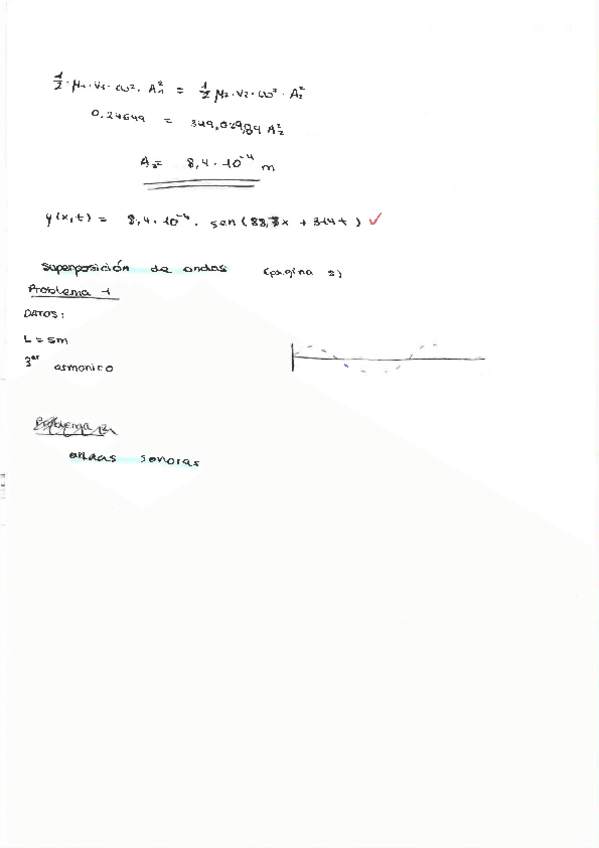 1/2 · μ₁ · v₁ · ω² · A₁² = 1/2 μ₂ · v₂ · ω² · A₂²
0,24649 = A₂²
A₂ = 8,4 · 10⁻⁴ m
y(x,t) = 8,4 · 10⁻⁴ · sen ( + 314t) ✓
superposición de ondas (página )
Problema 1
DATOS:
L = 5m
3er armonico
Problema
ondas sonoras